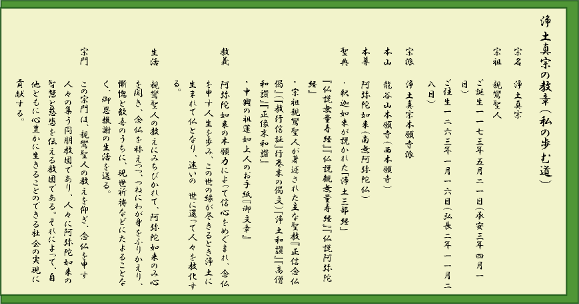 浄土真宗の教章(私の歩む道)
宗名　浄土真宗
宗祖　親鸞聖人
ご誕生一一七三年五月二一日(承安三年四月一
日)
ご往生一二六三年一月一六日(弘長二年一一月二
八日)
宗派　浄土真宗本願寺派
本山　龍谷山本願寺(西本願寺)
本尊　阿弥陀如来(南無阿弥陀仏)
聖典　・釈迦如来が説かれた「浄土三部経」
『仏説無量寿経』『仏説観無量寿経』『仏説阿弥陀
経』
・宗祖親鸞聖人が著述された主な聖教『正信念仏
偈』『教行信証』行巻末の偈文)『浄土和讃』『高僧
和讃』『正像末和讃』
・中興の祖蓮如上人のお手紙『御文章』
教義　阿弥陀如来の本願力によって信心をめぐまれ、念仏
を申す人生を歩み、この世の縁が尽きるとき浄土に
生まれて仏となり、迷いの世に還って人々を教化す
る。
生活　親鸞聖人の教えにみちびかれて、阿弥陀如来のみ心
を聞き、念仏を称えつつ、つねにわが身をふりかえり、
慚愧と歓喜のうちに、現世祈祷などにたよることな
く、御恩報謝の生活を送る。
宗門　この宗門は、親鸞聖人の教えを仰ぎ、念仏を申す
人々の集う同朋教団であり、人々に阿弥陀如来の
智慧と慈悲を伝える教団である。それによって、自
他ともに心豊かに生きることのできる社会の実現に
貢献する。